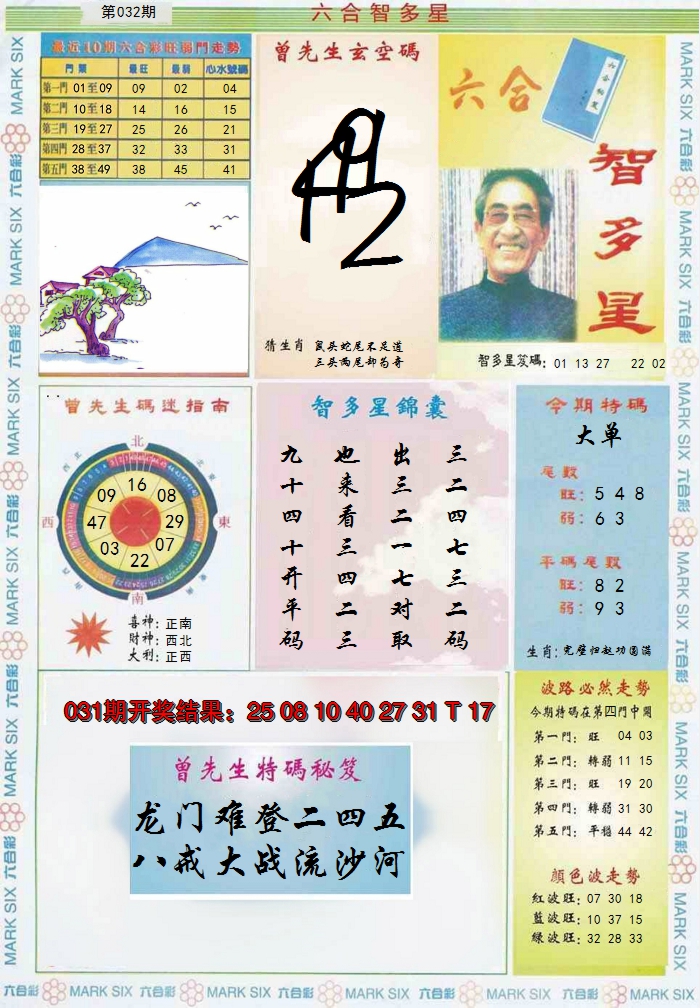 第032期
六合智多星
最近10期六合彩旺弱門走勢
門類 最旺 最弱 心水號碼
第一門 01至09 09 02 04
第二門 10至18 14 16 15
第三門 19至27 25 26 21
第四門 28至37 32 33 31
第五門 38至49 38 45 41
曾先生玄空碼
猜生肖 鼠头蛇尾不足道
三头两尾却苟奇
六合
智多星
智多星笈碼: 01 13 27 22 02
曾先生碼迷指南
北
東
南
西
東北
西北
東南
西南
16
08
29
07
22
03
47
09
喜神: 正南
財神: 西北
大利: 正西
智多星錦囊
三二四七三二码
出三二一七对取
也来看三四二三
九十四十开平码
今期特碼
大单
尾數
旺: 5 4 8
弱: 6 3
平碼尾數
旺: 8 2
弱: 9 3
生肖: 完璧归赵功圆满
031期开奖结果: 25 08 10 40 27 31 T 17
曾先生特碼秘笈
龙门难登二四五
八戒大战流沙河
波路必然走勢
今期特碼在第四門中開
第一門: 旺 04 03
第二門: 轉弱 11 15
第三門: 旺 19 20
第四門: 轉弱 31 30
第五門: 平穩 44 42
顏色波走勢
紅波旺: 07 30 18
藍波旺: 10 37 15
綠波旺: 32 28 33
MARK SIX 六合彩